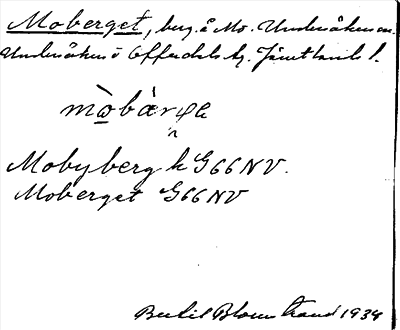 Moberget, berg. å Mo. Undersåkers sn.
Undersåkers o Offerdals tg. Jämtlands l.
mo̠bàrge
Mobyberg k G66NV.
Moberget G66NV
Bertil Blomstrand 1934